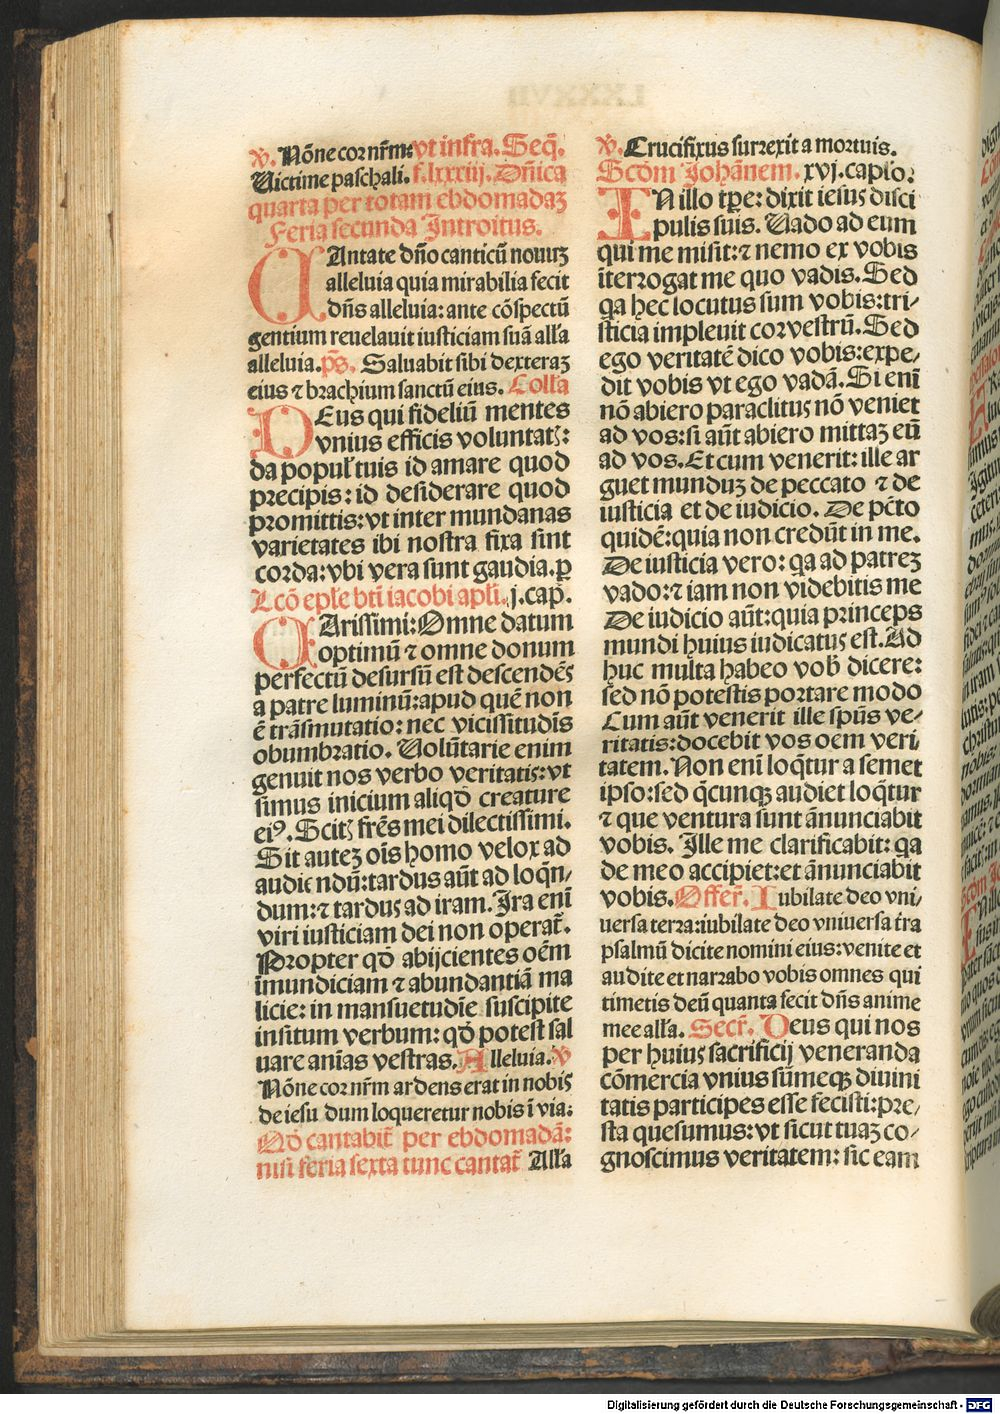 ℣. Nōne cor nr̄m: vt infra. Seq̄.
Victime paschali. f. lxxxiij. Dn̄ica
quarta per totam ebdomadaꝫ
Feria secunda Introitus.
CAntate dn̄o canticū nouuꝫ
alleluia quia mirabilia fecit
dn̄s alleluia: ante cōspectū
gentium reuelauit iusticiam suā all'a
alleluia. ps̄. Saluabit sibi dexteraꝫ
eius ⁊ brachium sanctū eius. Coll'a
DEus qui fideliū mentes
vnius efficis voluntatꝭ:
da popul' tuis id amare quod
precipis: id desiderare quod
promittis: vt inter mundanas
varietates ibi nostra fixa sint
corda: vbi vera sunt gaudia. ꝑ
Lcō epl'e btī iacobi apl'i. j. cap̄.
CArissimi: Omne datum
optimū ⁊ omne donum
perfectū desursū est descendēs
a patre luminū: apud quē non
ē trāsmutatio: nec vicissitudīs
obumbratio. Volūtarie enim
genuit nos verbo veritatis: vt
simus inicium aliqd̄ creature
eiꝰ. Scitꝭ frēs mei dilectissimi.
Sit auteꝫ oīs homo velox ad
audiendū: tardus aūt ad loqn̄-
dum: ⁊ tardus ad iram. Ira enī
viri iusticiam dei non operat̄.
Propter qd̄ abijcientes oēm
īmundiciam ⁊ abundantiā ma
licie: in mansuetudīe suscipite
insitum verbum: qd̄ potest sal
uare anīas vestras. Alleluia. ℣
Nōne cor nr̄m ardens erat in nobis
de iesu dum loqueretur nobis ī via:
Nō cantabit̄ per ebdomadā:
nisi feria sexta tunc cantat̄ All'a
℣. Crucifixus surrexit a mortuis.
Scdm̄ Johānem. xvj. capl̄o.
IN illo tꝑe: dixit iesus disci
pulis suis. Vado ad eum
qui me misit: ⁊ nemo ex vobis
īterrogat me quo vadis. Sed
qa hec locutus sum vobis: tri-
sticia impleuit cor vestrū. Sed
ego veritatē dico vobis: expe-
dit vobis vt ego vadā. Si enī
nō abiero paraclitus nō veniet
ad vos: si aūt abiero mittaꝫ eū
ad vos. Et cum venerit: ille ar
guet munduꝫ de peccato ⁊ de
iusticia et de iudicio. De pc̄to
quidē: quia non credūt in me.
De iusticia vero: qa ad patreꝫ
vado: ⁊ iam non videbitis me
De iudicio aūt: quia princeps
mundi huius iudicatus est. Ad
huc multa habeo vob̄ dicere:
sed nō potestis portare modo
Cum aūt venerit ille spūs ve-
ritatis: docebit vos oem veri
tatem. Non enī loq̄tur a semet
ipso: sed q̄cunqꝫ audiet loq̄tur
⁊ que ventura sunt ānunciabit
vobis. Ille me clarificabit: qa
de meo accipiet: et ānunciabit
vobis. Offer̄. Iubilate deo vni-
uersa terra: iubilate deo vniuersa t̄ra
psalmū dicite nomini eius: venite et
audite et narrabo vobis omnes qui
timetis deū quanta fecit dn̄s anime
mee all'a. Secr̄. Deus qui nos
per huius sacrificij veneranda
cōmercia vnius sūmeqꝫ diuini
tatis participes esse fecisti: pre-
sta quesumus: vt sicut tuaꝫ co-
gnoscimus veritatem: sic eam
Digitalisierung gefördert durch die Deutsche Forschungsgemeinschaft - DFG